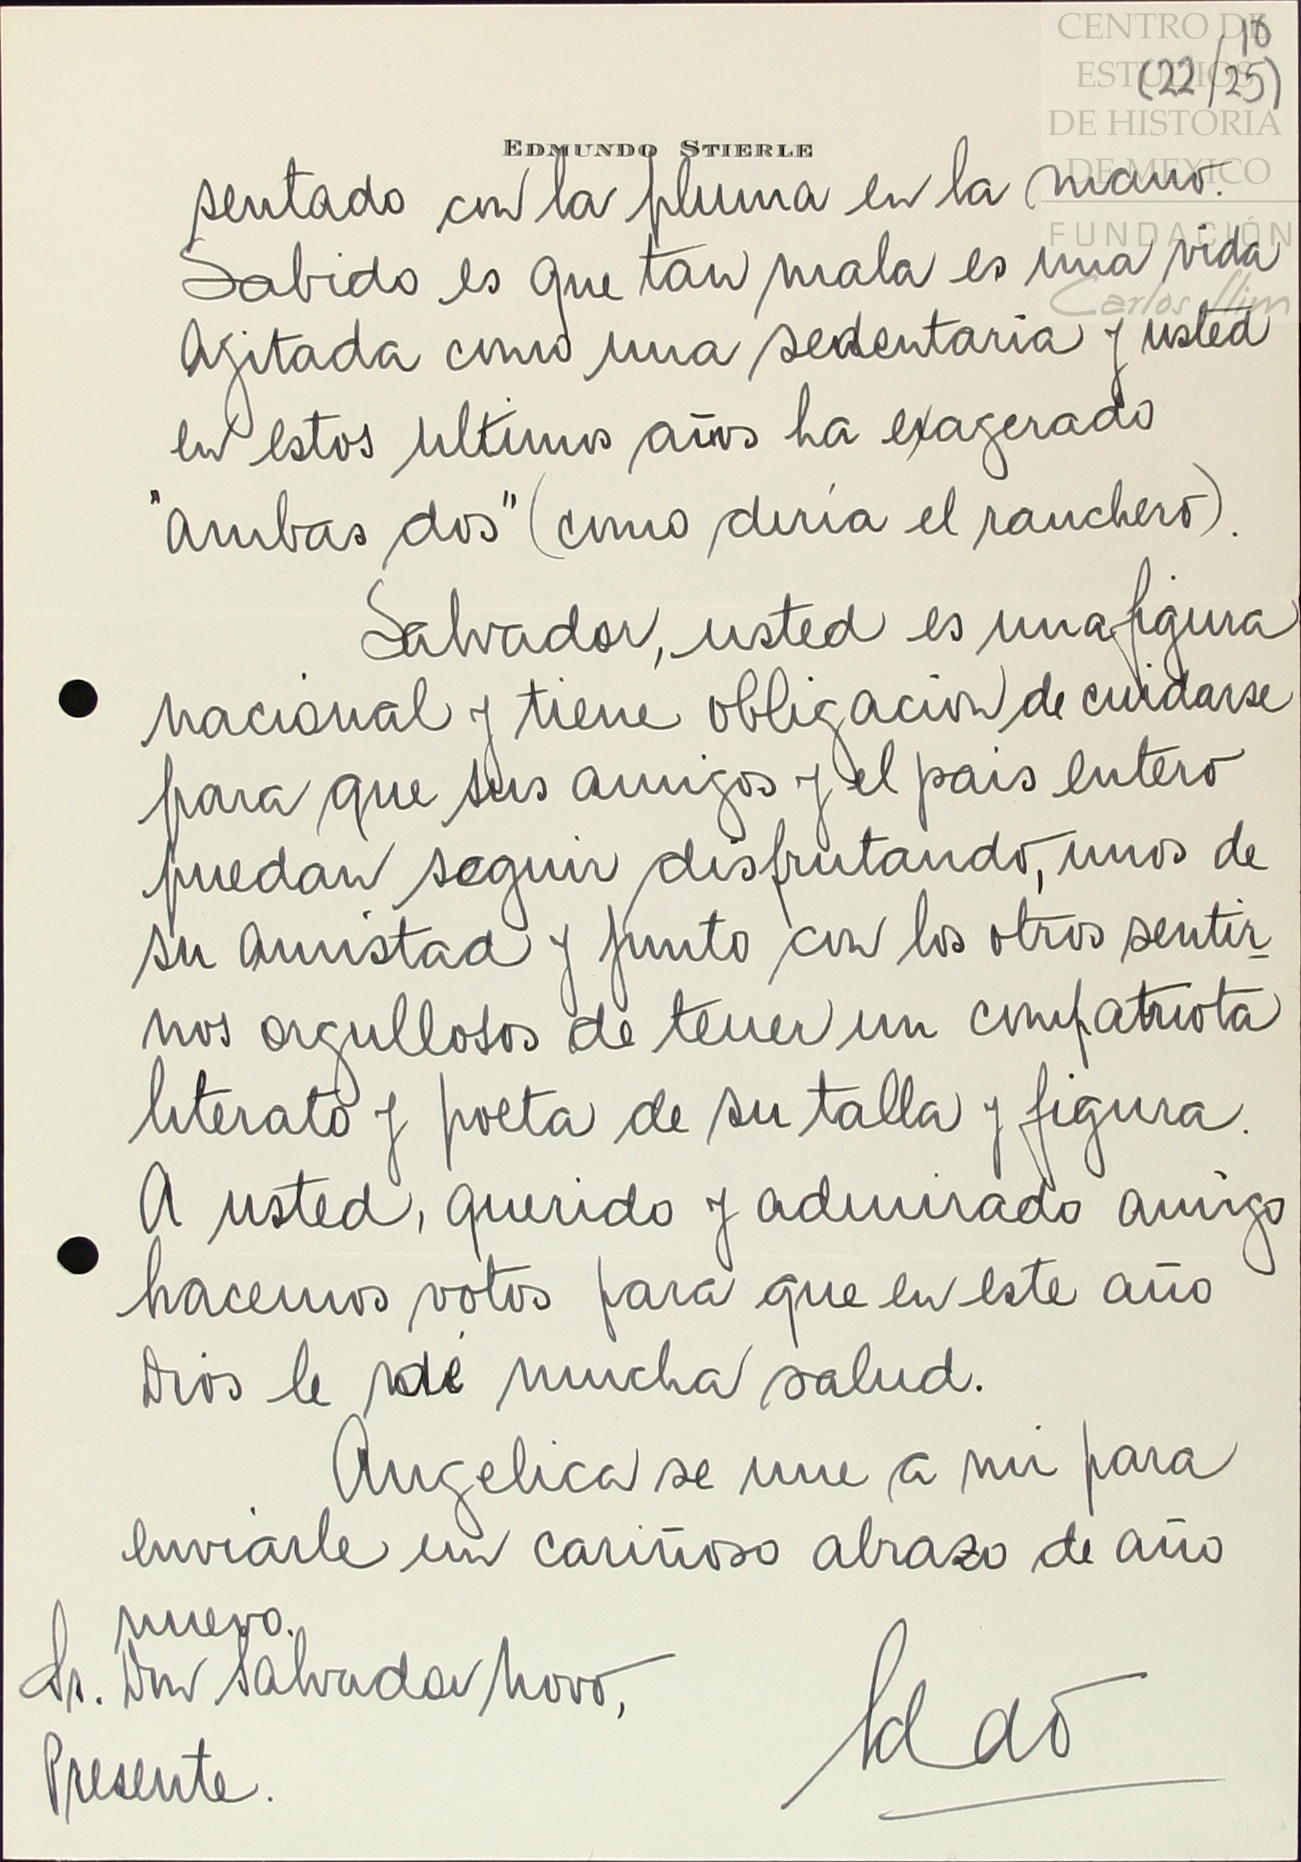 CENTRO DE
ESTUDIOS
DE HISTORIA
DE MEXICO
FUNDACIÓN
Carlos Slim
16
(22/25)
EDMUNDO STIERLE
sentado con la pluma en la mano.
Sabido es que tan mala es una vida
agitada como una sedentaria y usted
en estos ultimos años ha exagerado
"ambas dos" (como diría el ranchero).
Salvador, usted es una figura
nacional y tiene obligación de cuidarse
para que sus amigos y el pais entero
puedan seguir disfrutando, unos de
su amistad y junto con los otros sentir-
nos orgullosos de tener un compatriota
literato y poeta de su talla y figura.
A usted, querido y admirado amigo
hacemos votos para que en este año
Dios le dé mucha salud.
Angelica se une a mi para
enviarle un cariñoso abrazo de año
nuevo.
Sr. Don Salvador Novo,
Presente.
Eddo